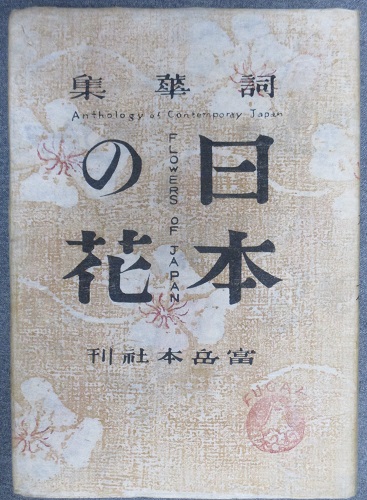 詞華集
Anthology of Contemporay Japan
日本
の花
FLOWERS OF JAPAN
富岳本社刊